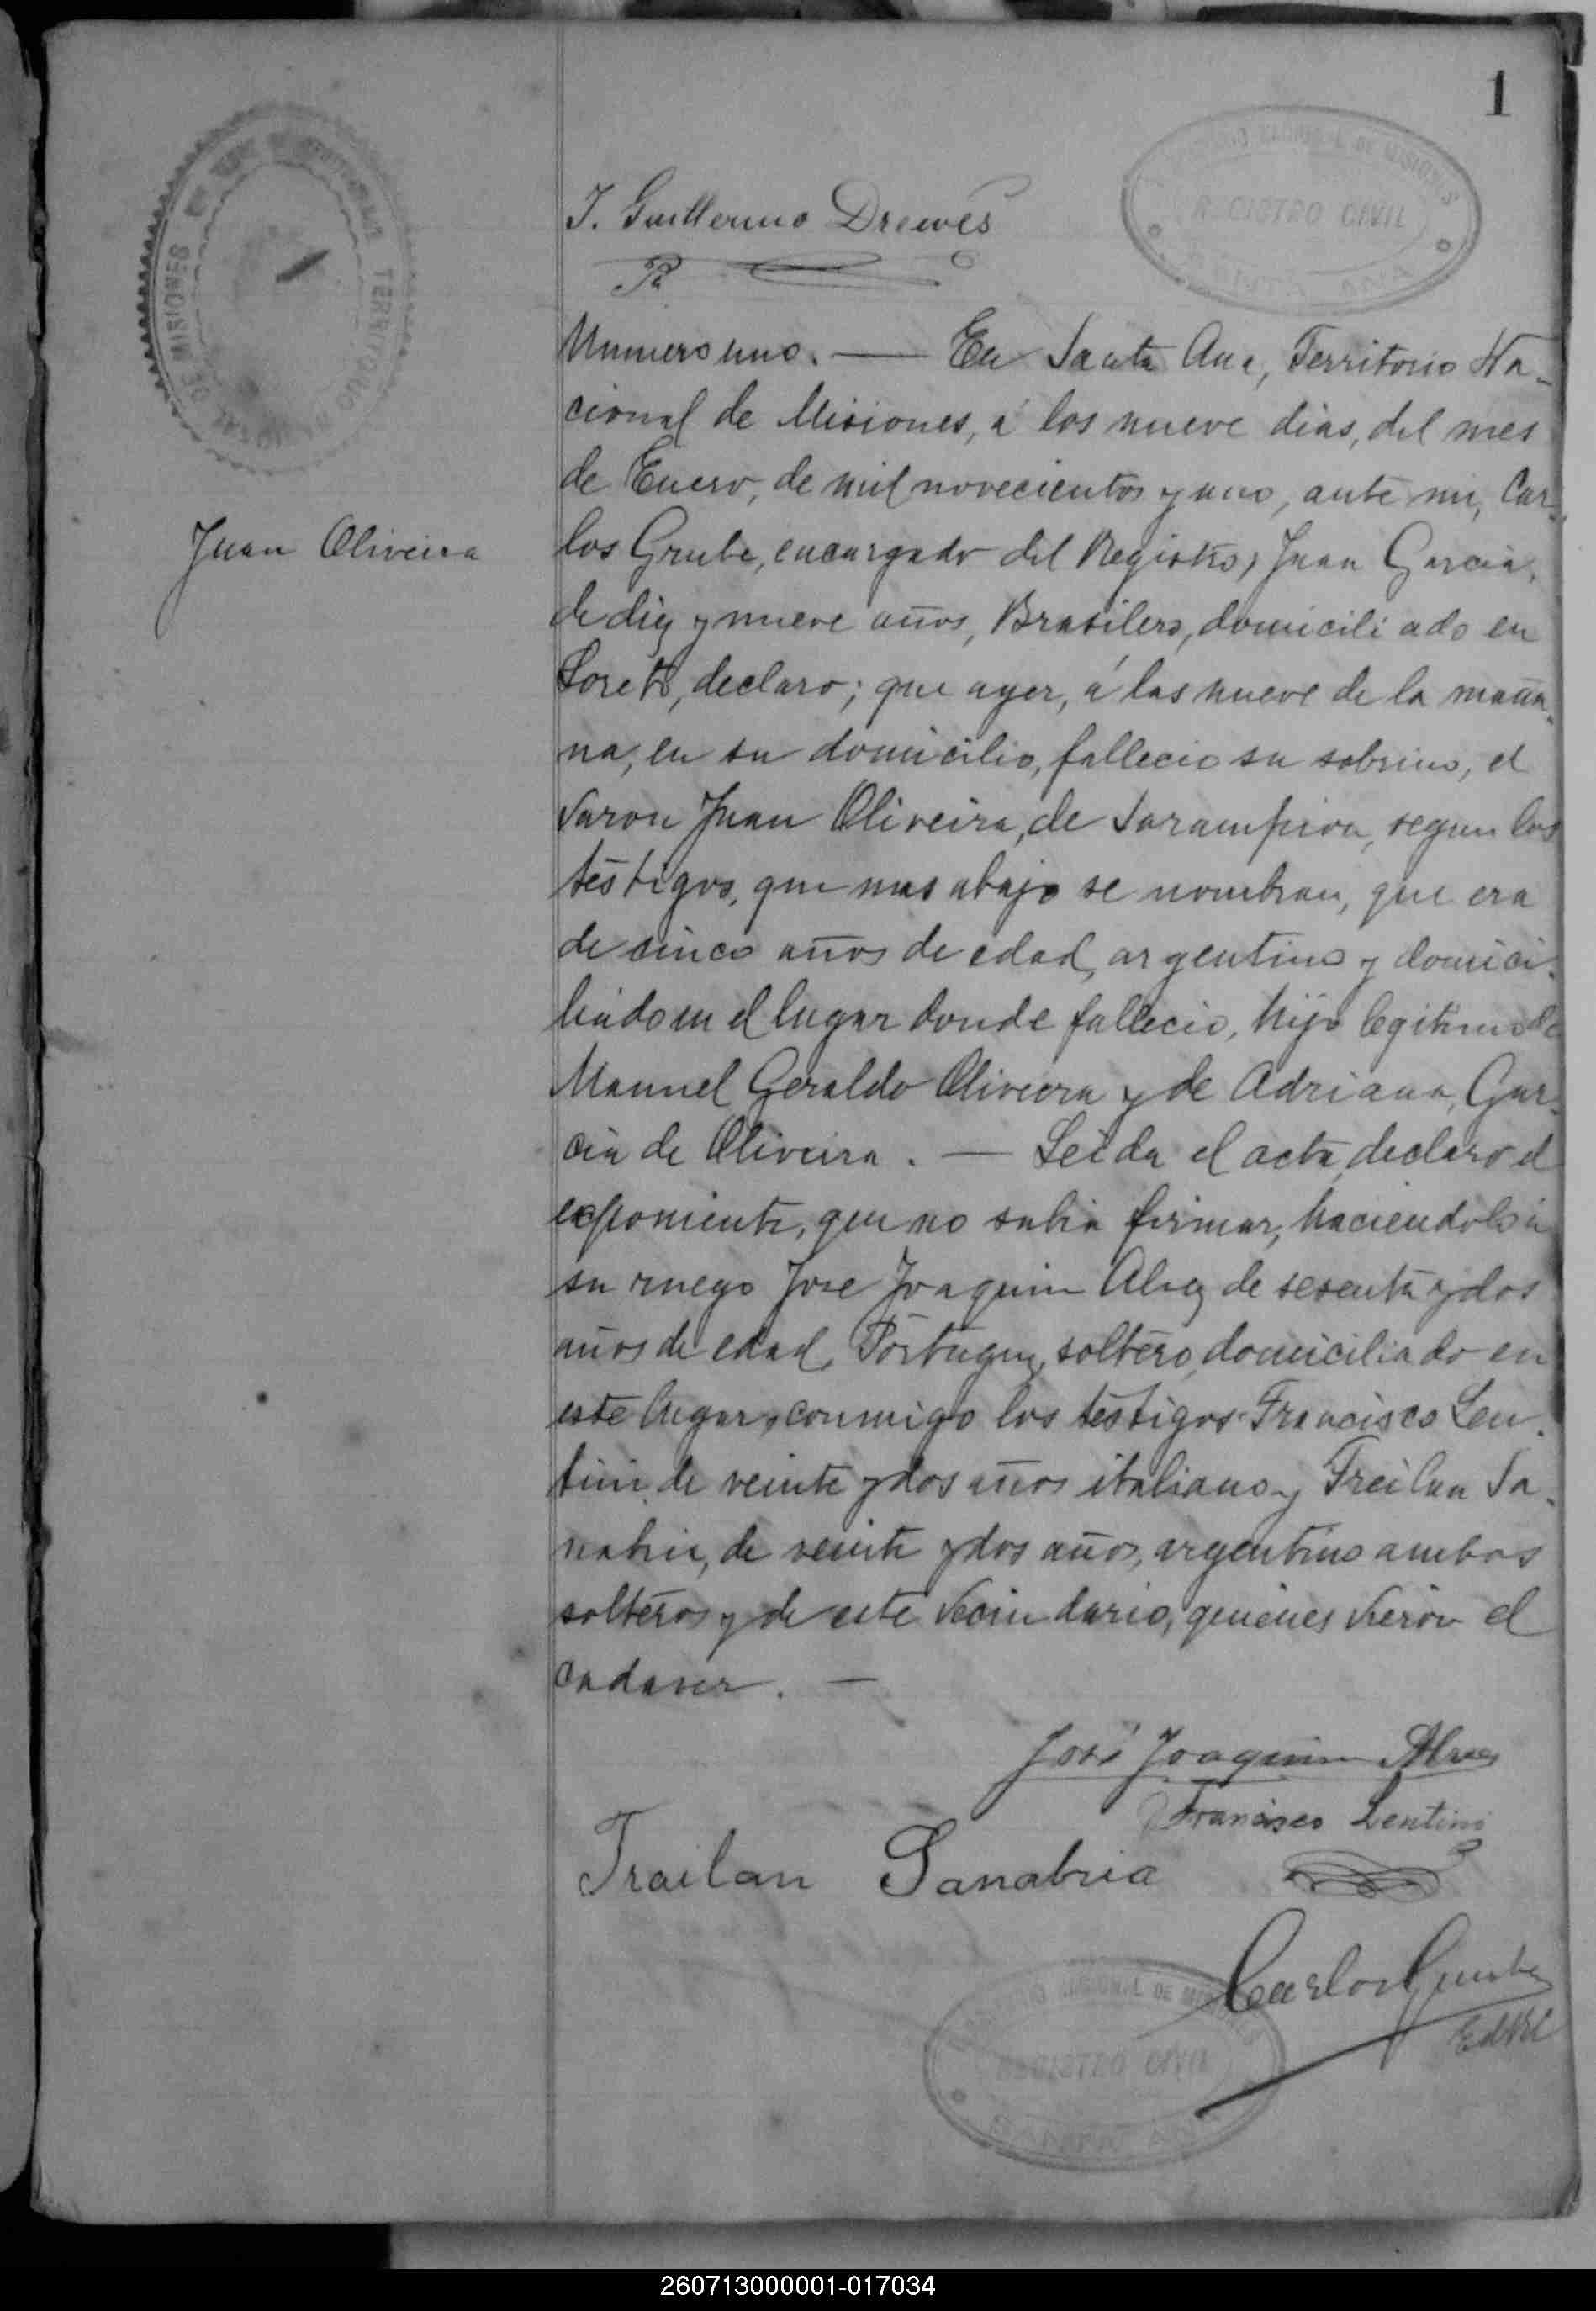 1
TERRITORIO NACIONAL DE MISIONES
REGISTRO CIVIL
SANTA ANA
TERRITORIO
DE MISIONES
J. Guillermo Drewes
Juan Oliveira
Numero uno. — En Santa Ana, Territorio Na-
cional de Misiones, á los nueve dias, del mes
de Enero, de mil novecientos y uno, ante mi, Car-
los Grube, encargado del Registro, Juan Garcia,
de diez y nueve años, Brasilero, domiciliado en
Loreto, declaro; que ayer, á las nueve de la maña-
na, en su domicilio, fallecio su sobrino, el
varon Juan Oliveira, de sarampion, segun los
testigos, que mas abajo se nombran, que era
de cinco años de edad, argentino y domici-
liado en el lugar donde fallecio, hijo legitimo de
Manuel Geraldo Oliveira y de Adriana, Gar-
cia de Oliveira. — Leida el acta, declaro el
exponiente, que no sabia firmar, haciendolo á
su ruego Jose Joaquin Alvez de sesenta y dos
años de edad, Portuguez, soltero, domiciliado en
este lugar, conmigo los testigos Francisco Len-
tini de veinte y dos años italiano y Freilan Sa-
nabria, de veinte y dos años, argentino ambos
solteros y de este vecindario, quienes vieron el
cadaver. —
José Joaquim Alves
Francisco Lentini
Frailan Sanabria
Carlos Grube
TERRITORIO NACIONAL DE MISIONES
REGISTRO CIVIL
SANTA ANA
260713000001-017034